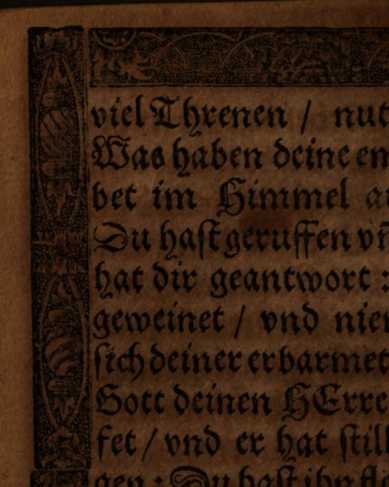 viel Threnen / nut
Was haben deine en
bet im Himmel au
Du hast geruffen vn̄
hat dir geantwort :
geweinet / vnd nie
sich deiner erbarmet
Gott deinen HErre
fet / vnd er hat still
gen : Du hast ihn